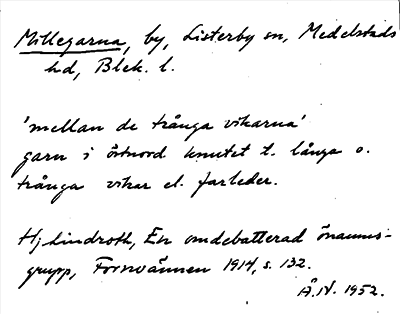 Millegarna, by, Listerby sn, Medelstads
hd, Blek. l.
'mellan de trånga vikarna'
garn i östnord knutet t. långa o.
trånga vikar el. farleder.
Hj. Lindroth, En omdebatterad önamns-
grupp, Fornvännen 1914, s. 132.
Å.N. 1952.